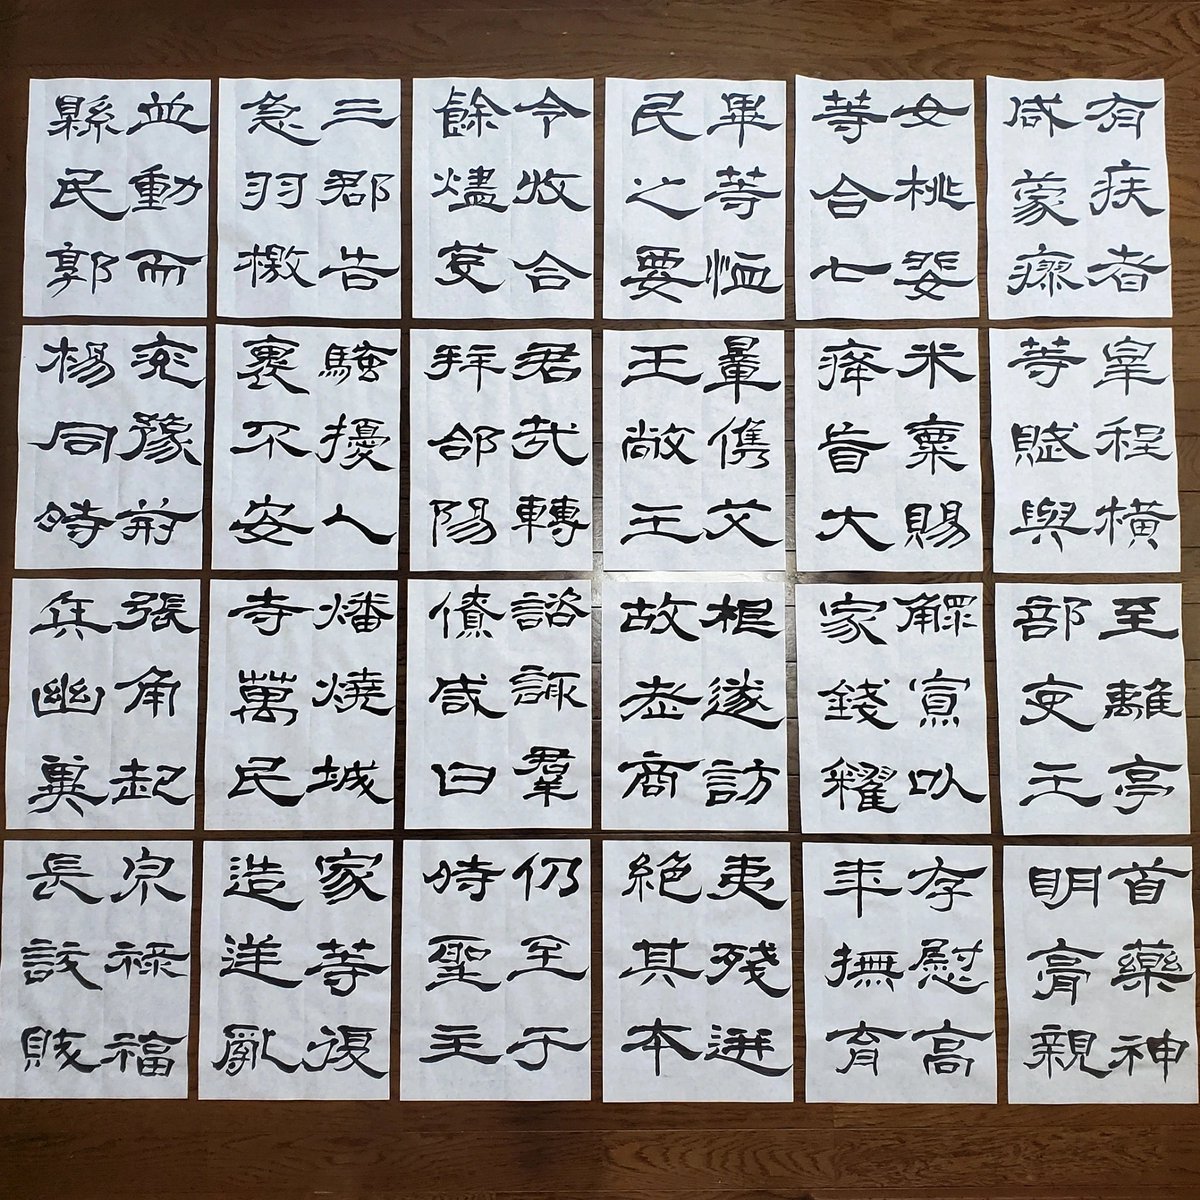 宗禄福
長訞賊
張角起
兵幽冀
兗豫荊
楊同時
並動而
縣民郭
家等復
造逆亂
燔燒城
寺萬民
騷擾人
裹不安
三郡告
急羽檄
仍至于
時聖主
諮諏羣
僚咸曰
君哉轉
拜郃陽
令收合
餘燼芟
夷殘迸
絶其本
根遂訪
故老商
量儁艾
王敞王
畢等恤
民之要
存慰高
年撫育
鰥寡以
家錢糴
米粟賜
癃盲大
女桃婓
等合七
首藥神
明膏親
至離亭
部吏王
宰程橫
等賦與
有疾者
咸蒙瘳